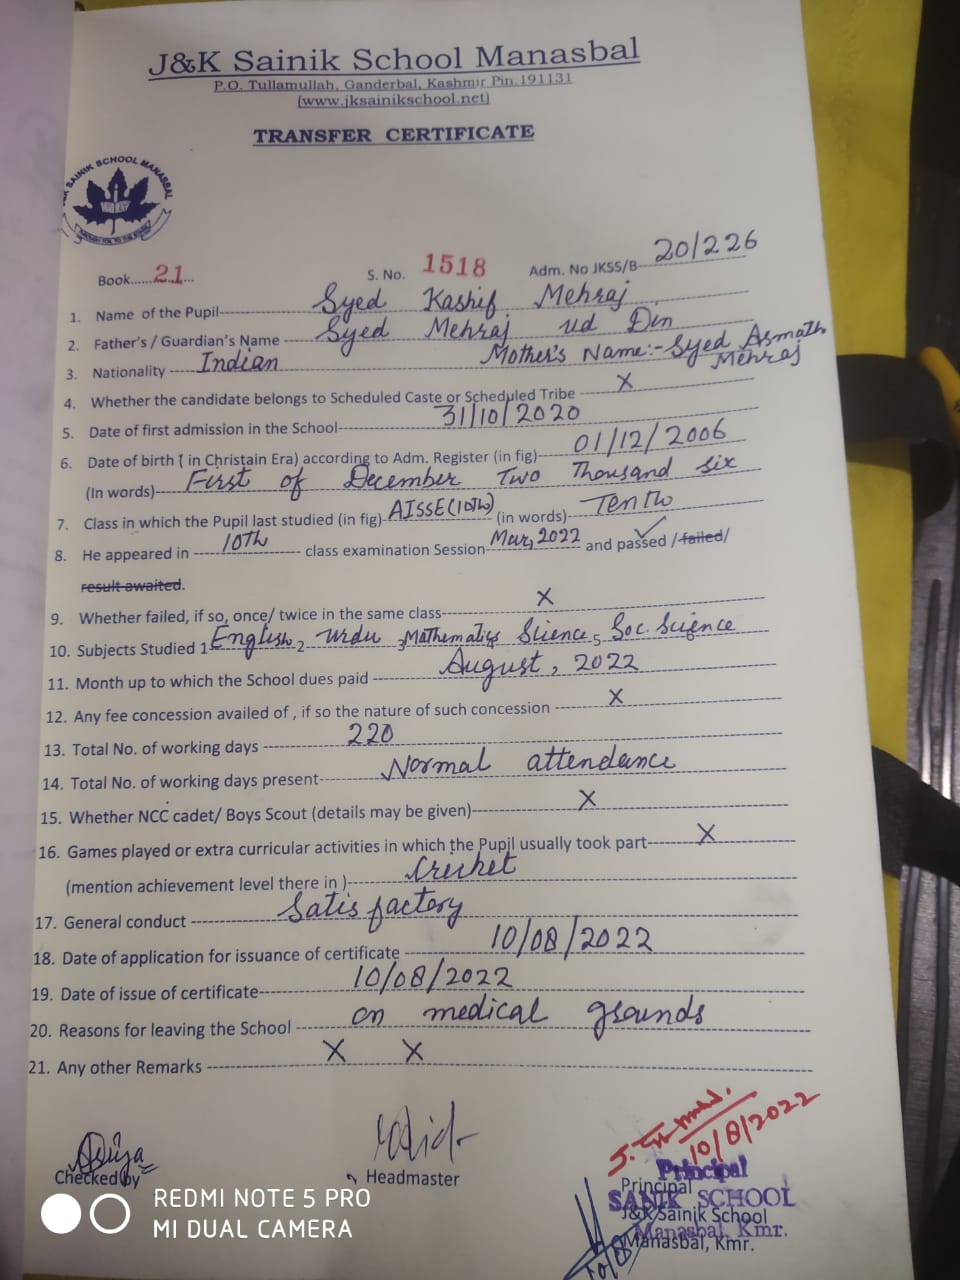 J&K Sainik School Manasbal
P.O. Tullamullah, Ganderbal, Kashmir Pin.191131
(www.jksainikschool.net)
TRANSFER CERTIFICATE
SAINIK SCHOOL MANASBAL
Book......21......
S. No. 1518
Adm. No JKSS/B- 20/226
1. Name of the Pupil Syed Kashif Mehraj
2. Father's / Guardian's Name Syed Mehraj ud Din
Mother's Name:- Syed Asmath Mehraj
3. Nationality Indian
4. Whether the candidate belongs to Scheduled Caste or Scheduled Tribe X
5. Date of first admission in the School 31/10/2020
6. Date of birth ( in Christain Era) according to Adm. Register (in fig) 01/12/2006
(In words) First of December Two Thousand Six
7. Class in which the Pupil last studied (in fig) AISSE(10th) (in words) Tenth
8. He appeared in 10th class examination Session Mar, 2022 and passed / failed/
result awaited.
9. Whether failed, if so, once/ twice in the same class X
10. Subjects Studied 1 English 2 Urdu 3 Mathematics Science 5 Soc. Science
11. Month up to which the School dues paid August, 2022
12. Any fee concession availed of , if so the nature of such concession X
13. Total No. of working days 220
14. Total No. of working days present Normal attendance
15. Whether NCC cadet/ Boys Scout (details may be given) X
16. Games played or extra curricular activities in which the Pupil usually took part X
(mention achievement level there in ) Cricket
17. General conduct Satisfactory
18. Date of application for issuance of certificate 10/08/2022
19. Date of issue of certificate 10/08/2022
20. Reasons for leaving the School on medical grounds
21. Any other Remarks X X
10/8/2022
Checked by
Headmaster
Principal
Principal
SANIK SCHOOL
J&K Sainik School
Manasbal, Kmr.
Manasbal, Kmr.
REDMI NOTE 5 PRO
MI DUAL CAMERA